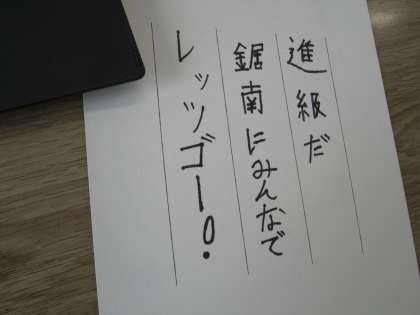 進級だ
鋸南にみんなで
レッツゴー！